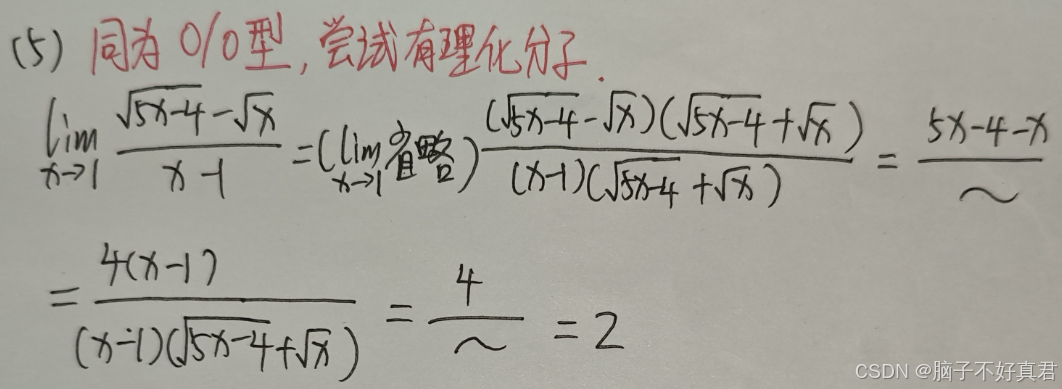 (5) 同为0/0型，尝试有理化分子.
lim x→1 (√(5x-4) - √x)/(x-1) = (lim x→1 省略) ((√(5x-4) - √x)(√(5x-4) + √x))/((x-1)(√(5x-4) + √x)) = (5x-4-x)/~
= 4(x-1)/((x-1)(√(5x-4) + √x)) = 4/~ = 2
CSDN @脑子不好真君